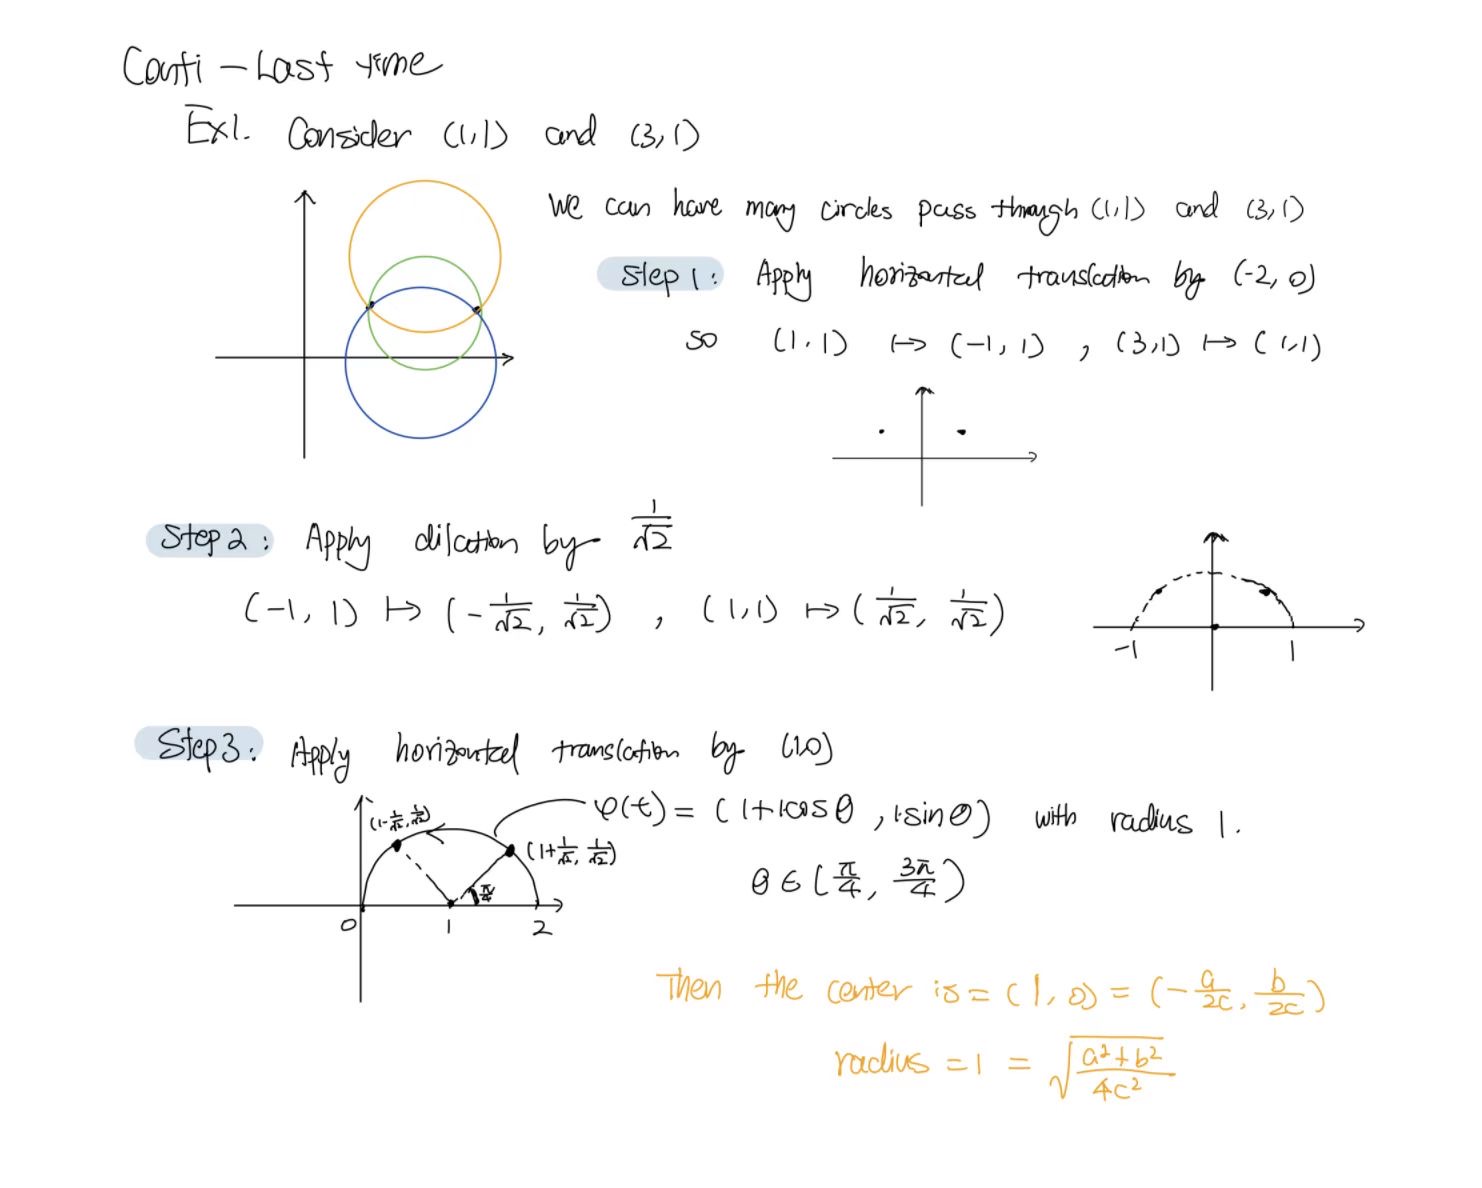 Conti - Last time
Ex1. Consider (1,1) and (3,1)
We can have many circles pass through (1,1) and (3,1)
Step 1: Apply horizontal translation by (-2, 0)
so (1,1) ↦ (-1, 1) , (3,1) ↦ (1,1)
Step 2: Apply dilation by 1/√2
(-1, 1) ↦ (-1/√2, 1/√2) , (1,1) ↦ (1/√2, 1/√2)
-1 1
Step 3: Apply horizontal translation by (1,0)
(1-1/√2, 1/√2) φ(t) = (1+1cosθ, 1·sinθ) with radius 1.
(1+1/√2, 1/√2)
π/4 θ∈[π/4, 3π/4)
0 1 2
Then the center is = (1, 0) = (-a/2c, b/2c)
radius = 1 = √(a²+b²/4c²)